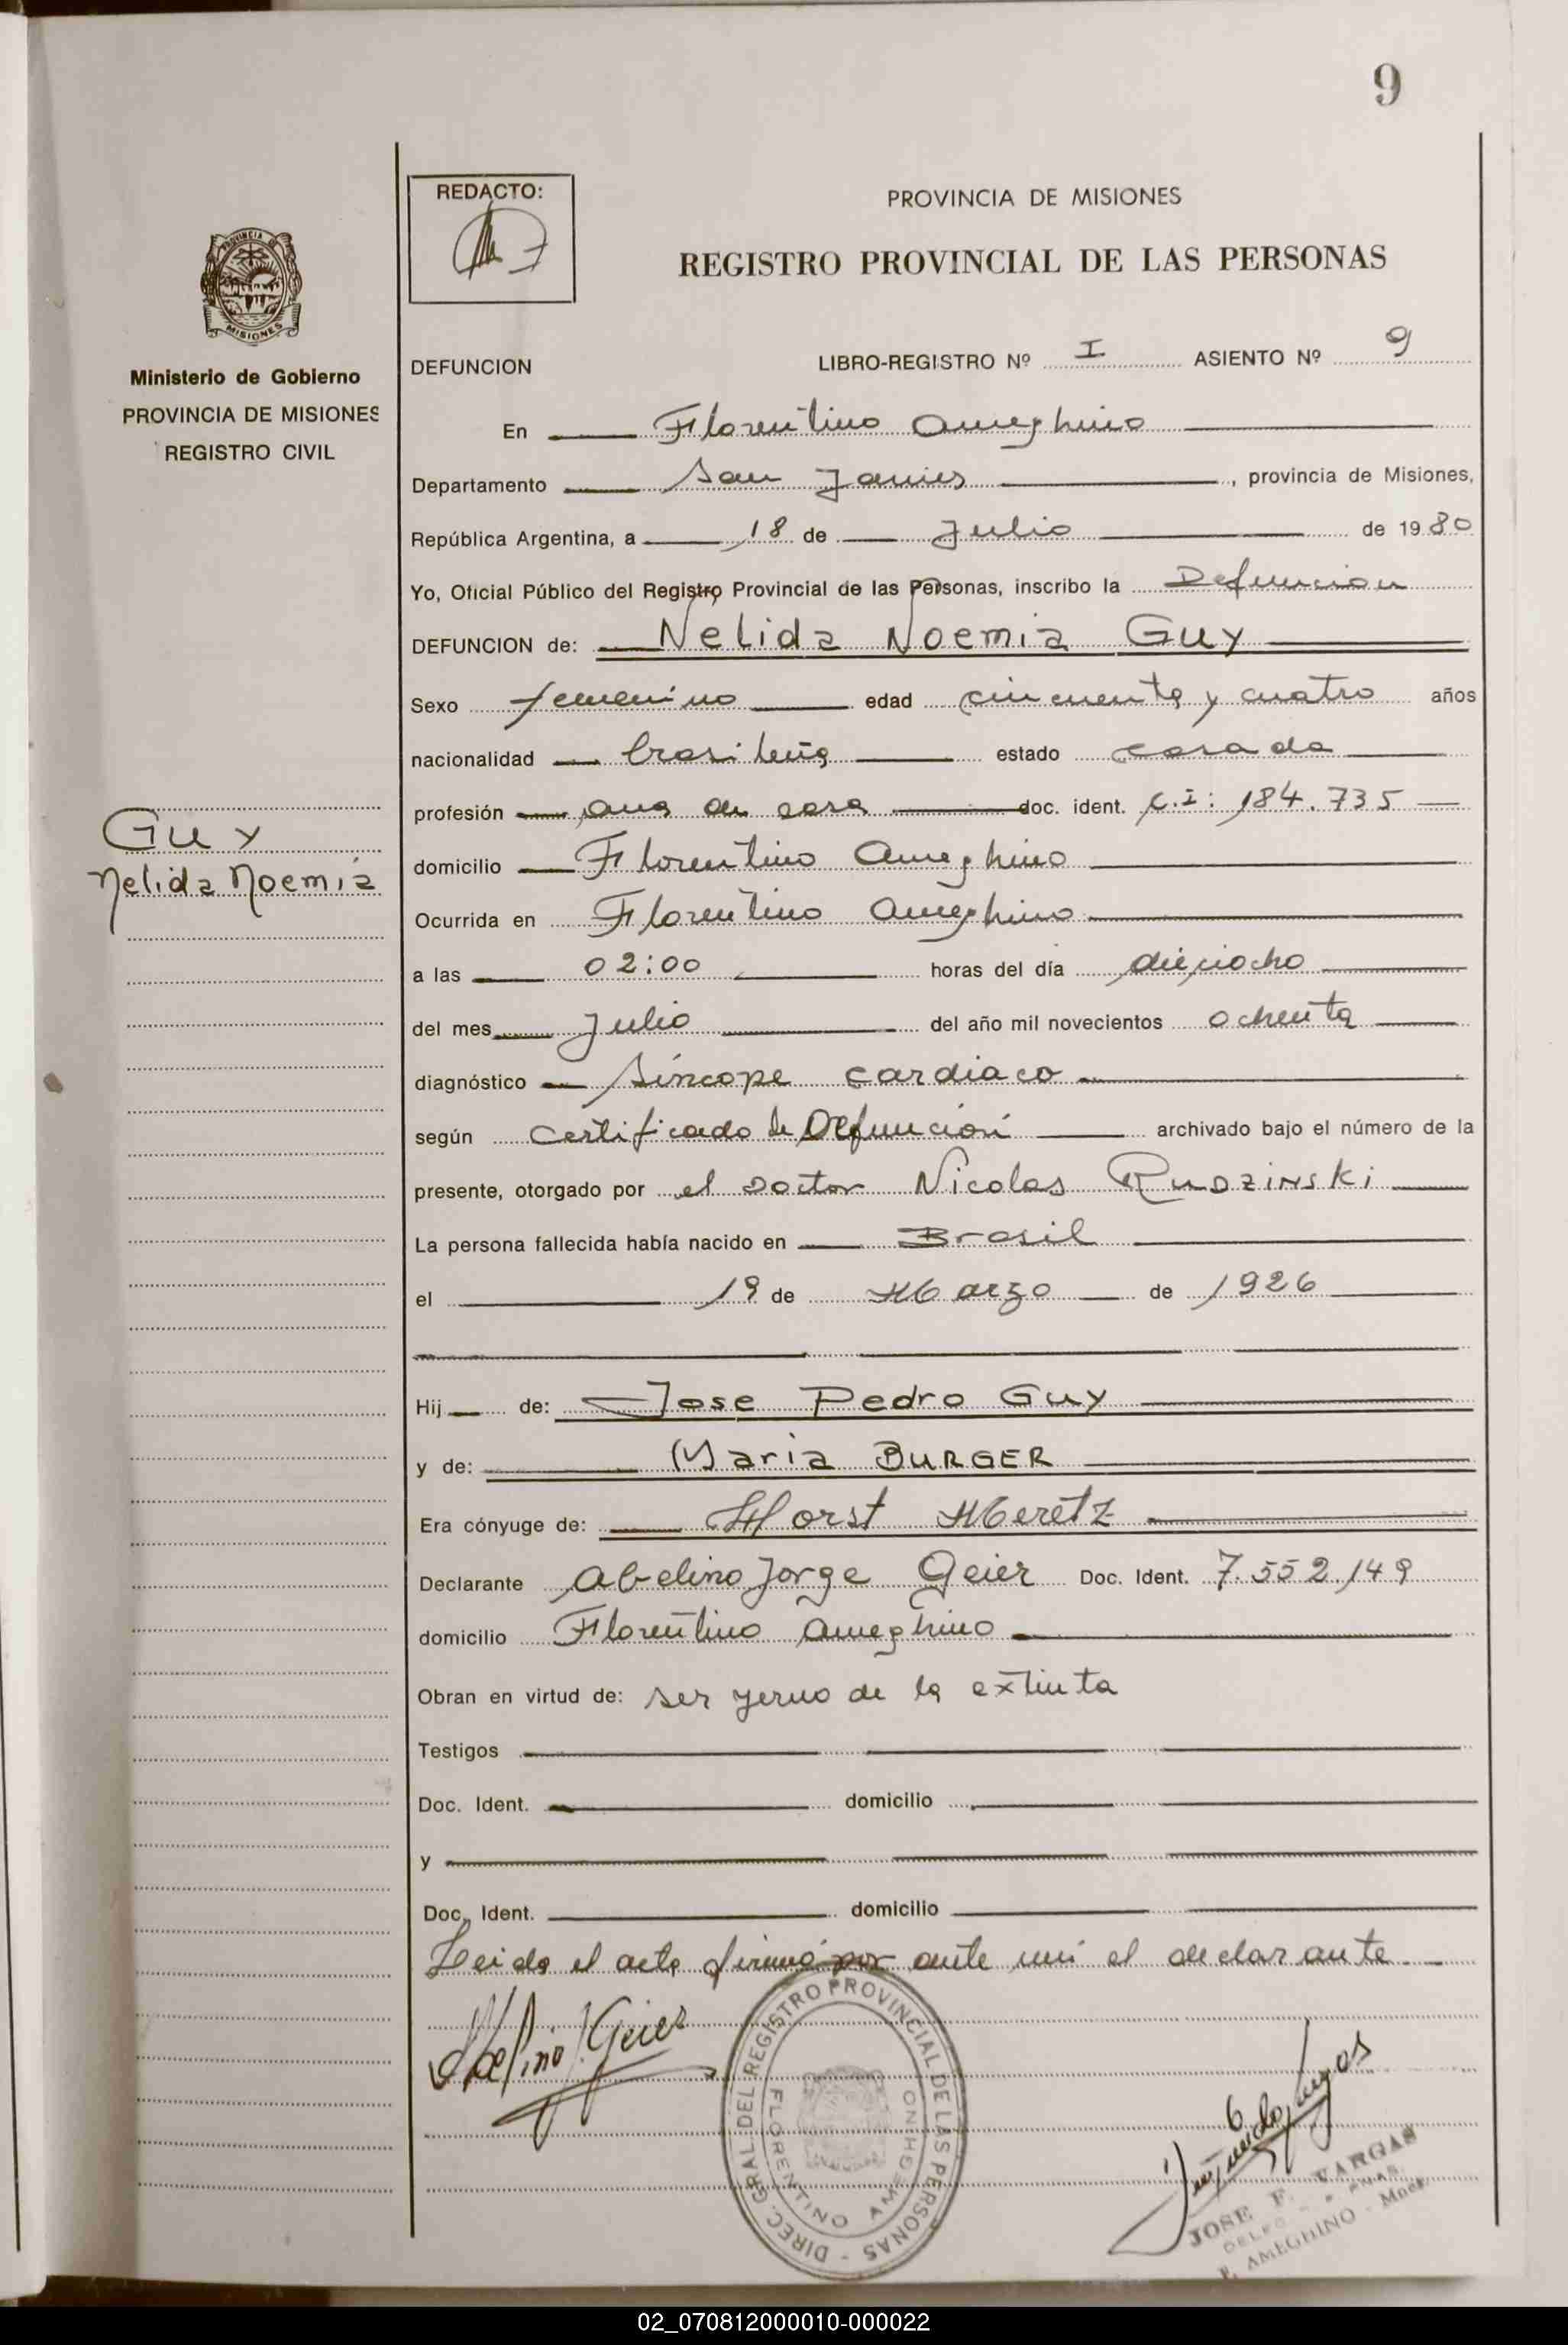 9
REDACTO:
PROVINCIA DE MISIONES
REGISTRO PROVINCIAL DE LAS PERSONAS
PROVINCIA DE
MISIONES
Ministerio de Gobierno
PROVINCIA DE MISIONES
REGISTRO CIVIL
DEFUNCION LIBRO-REGISTRO Nº I ASIENTO Nº 9
En Florentino Ameghino
Departamento San Javier, provincia de Misiones,
República Argentina, a 18 de Julio de 1980
Yo, Oficial Público del Registro Provincial de las Personas, inscribo la Defuncion
DEFUNCION de: Nelida Noemia Guy
Sexo femenino edad cincuenta y cuatro años
nacionalidad brasileña estado casada
profesión ama de casa doc. ident. C.I: 184.735
Guy
Nelida Noemia
domicilio Florentino Ameghino
Ocurrida en Florentino Ameghino
a las 02:00 horas del día dieciocho
del mes Julio del año mil novecientos ochenta
diagnóstico Síncope cardiaco
según Certificado de Defunción archivado bajo el número de la
presente, otorgado por el Doctor Nicolas RUDZINSKi
La persona fallecida había nacido en Brasil
el 19 de Marzo de 1926
Hij de: Jose Pedro Guy
y de: Maria BURGER
Era cónyuge de: Horst Meretz
Declarante Abelino Jorge Geier Doc. Ident. 7.552.149
domicilio Florentino Ameghino
Obran en virtud de: ser yerno de la extinta
Testigos
Doc. Ident. domicilio
y
Doc. Ident. domicilio
Leida el acta firmó por ante mi el declarante
Abelino J Geier
DIREC. GRAL. DEL REGISTRO PROVINCIAL DE LAS PERSONAS -
FLORENTINO AMEGHINO
JOSE F. VARGAS
F. AMEGHINO - Mnes.
02_070812000010-000022